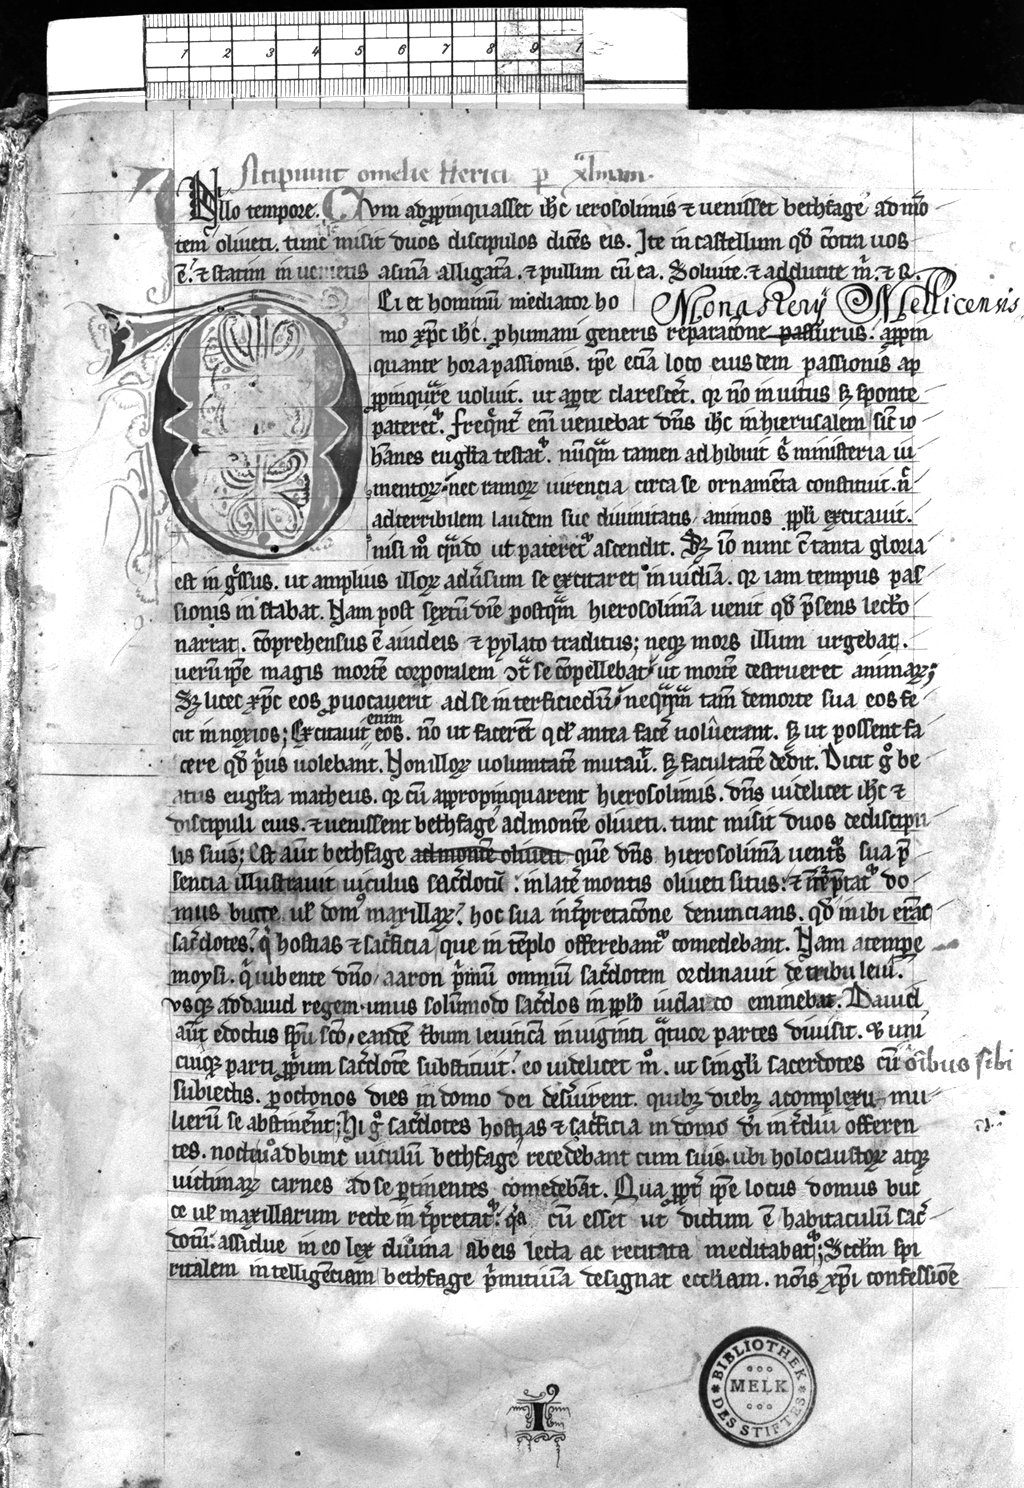 1 2 3 4 5 6 7 8 9 1
Incipiunt omelie Herici p
Illo tempore. Cum adp̱pinquasset ih̄c ierosolimis ⁊ uenisset bethfage ad mō
tem oliueti. tunc misit duos discipulos dicēs eis. Ite in castellum qđ cōtra uos
ē. ⁊ statim inuenietis asinā alligatā. ⁊ pullum cū ea. Soluite. ⁊ adducite m̄. ⁊ R̄.
Ei et hominū mediator ho
Monastery Mellicensis
mo xp̄c ih̄c. ꝓ humani generis reparacōne passurus. app̄in
quante hora passionis. ip̄e eciā loco eiusdem passionis ap
p̱pinquare uoluit. ut aꝑte claresceret. qr nō inuitus sꝫ sponte
pateret᷒. Freq̄nt̄ eni̅ ueniebat dn̄s ih̄c in hierusalem sic̄ io
hānes eugl̄ista testat᷒. nūq̄m tamen adhibuit s̄ ministeria iu
mentoꝝ nec ramoꝝ uirencia circa se ornamēta constituit. n̄
ad terribilem laudem sue diuinitatis animos pp̄li excitauit.
nisi m̊ q̄ndo ut pateret᷒ ascendit. Sꝫ iō nunc cū tanta gloria
est ingr̄ssus. ut amplius illoꝝ aduersum se excitaret inuidiā. qr iam tempus pas
sionis instabat. Nam post sextū diē postq̄m hierosolimā uenit qđ p̄sens lectio
narrat. cōprehensus ē a iudeis ⁊ pylato traditus; neqꝫ mors illum urgebat.
uerū ip̄e magis mortē corporalem ctͣ se cōpellebat ut mortē destrueret animaꝝ;
Sꝫ licet xp̄c eos ꝓuocauerit ad se interficiēdū neq̄q̄m tam̄ de morte sua eos fe
cit innoxios; Excitauit enim eos. nō ut facerēt qđ antea facere noluerant. sꝫ ut possent fa
cere qđ p̄us uolebant. Non illoꝝ uoluntatē mutauit. sꝫ facultatē dedit. Dicit g̊ be
atus eugl̄ista matheus. qr cū appropinquarent hierosolimis. dn̄s uidelicet ih̄c ⁊
discipuli eius. ⁊ uenissent bethfage ad montē oliueti. tunc misit duos de discipu
lis suis; Est aūt bethfage ad montē oliueti quē dn̄s hierosolimā uentur᷒ sua p̄
sencia illustrauit uiculus sacerdotū. in latere montis oliueti situs. ⁊ int̄p̄tat᷒ do
mus bucce. ul̄ dom᷒ maxillaꝝ. hoc sua int̄pretacōne denuncians. qđ in ibi erāt
sacerdotes. q̄ hostias ⁊ sacrificia que in tēplo offerebant᷒ comedebant. Nam a tempe
moysi. q̄ iubente dn̄o aaron p̄mū omniū sacerdotem ordinauit de tribu leui.
usqꝫ ad dauid regem unus solūmodo sacerdos in pp̄lo iudaico eminebat. Dauid
aūt edoctus sp̄u sc̄o, eandē tribum leuiticā in uiginti q̄tuor partes diuisit. ⁊ uni
cuiqꝫ parti pp̄um sacerdotē substituit. eo uidelicet m̊. ut singuli sacerdotes cū oībus sibi
subiectis. ꝑ octonos dies in domo dei deseruirent. quibꝫ diebꝫ a complexu mu
lierū se abstinerent; Hi g̊ sacerdotes hostias ⁊ sacrificia in domo d̄i int̄diu offeren
tes. noctu ad hunc uiculū bethfage recedebant cum suis. ubi holocaustoꝝ atqꝫ
uictimaꝝ carnes ad se ꝑtinentes comedebāt. Qua pp̄t ip̄e locus domus buc
ce ul̄ maxillarum recte int̄pretat᷒. q̄a cū esset ut dictum ē habitaculū sacer
dotū. assidue in eo lex diuina ab eis lecta ac recitata meditabat᷒; Sēdm spi
ritalem intelligenciam bethfage p̄mitiuā designat eccl̄iam. nōis xp̄i confessiōe
I
BIBLIOTHEK
MELK
DES STIFTES